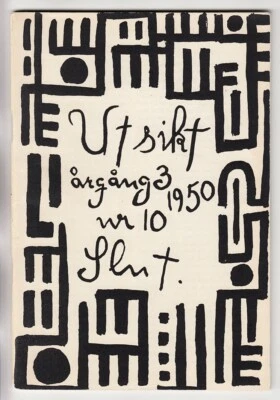 Utsikt
årgång 3 1950
nr 10
Slut.